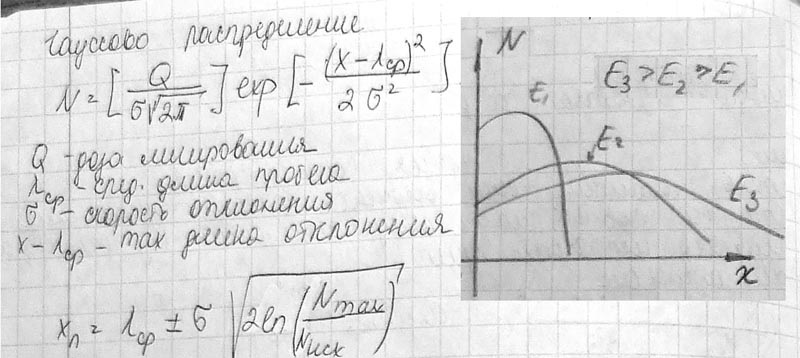 Гауссово распределение
N = [Q / σ√2π] exp [- (x - λср)² / 2σ²]
Q - доза легирования
λср - сред. длина пробега
σ - скорость отклонения
x - λср - max длина отклонения
xп = λср ± σ √2ln(Nmax / Nисх)
N
E3 > E2 > E1
E1
E2
E3
x